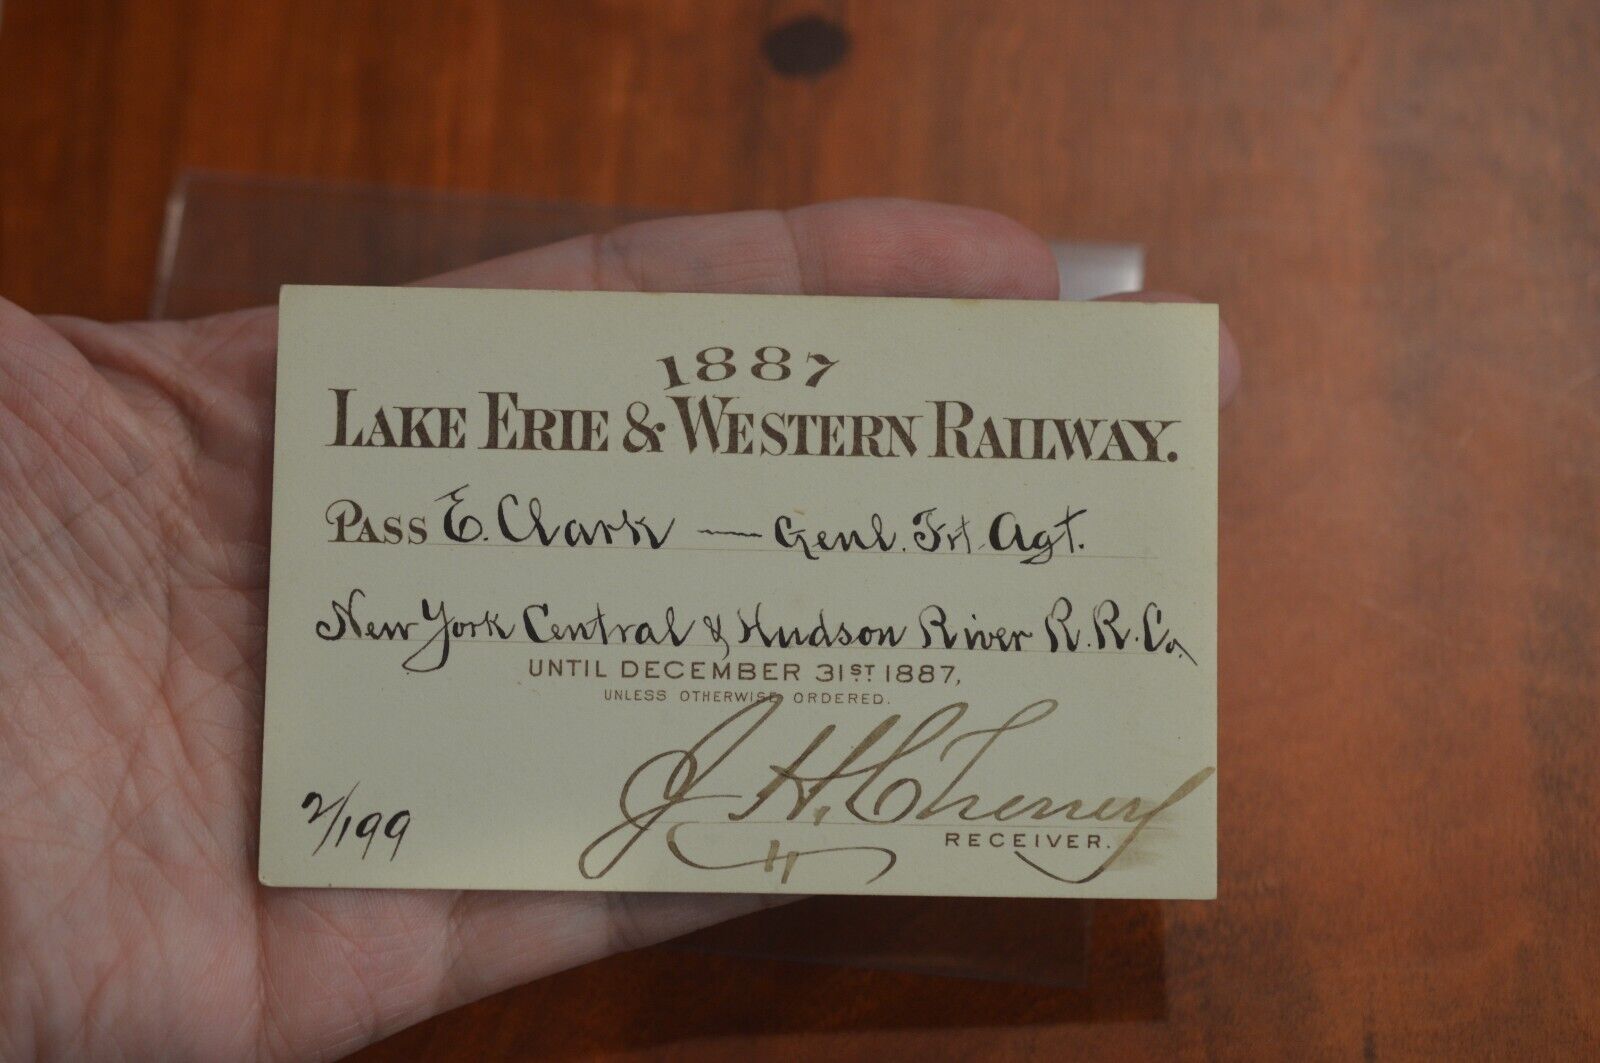 1887
LAKE ERIE & WESTERN RAILWAY.
PASS E. Clark — Genl. Frt. Agt.
New York Central & Hudson River R. R. Co.
UNTIL DECEMBER 31ST 1887,
UNLESS OTHERWISE ORDERED.
J. H. Cheney
RECEIVER.
2/199